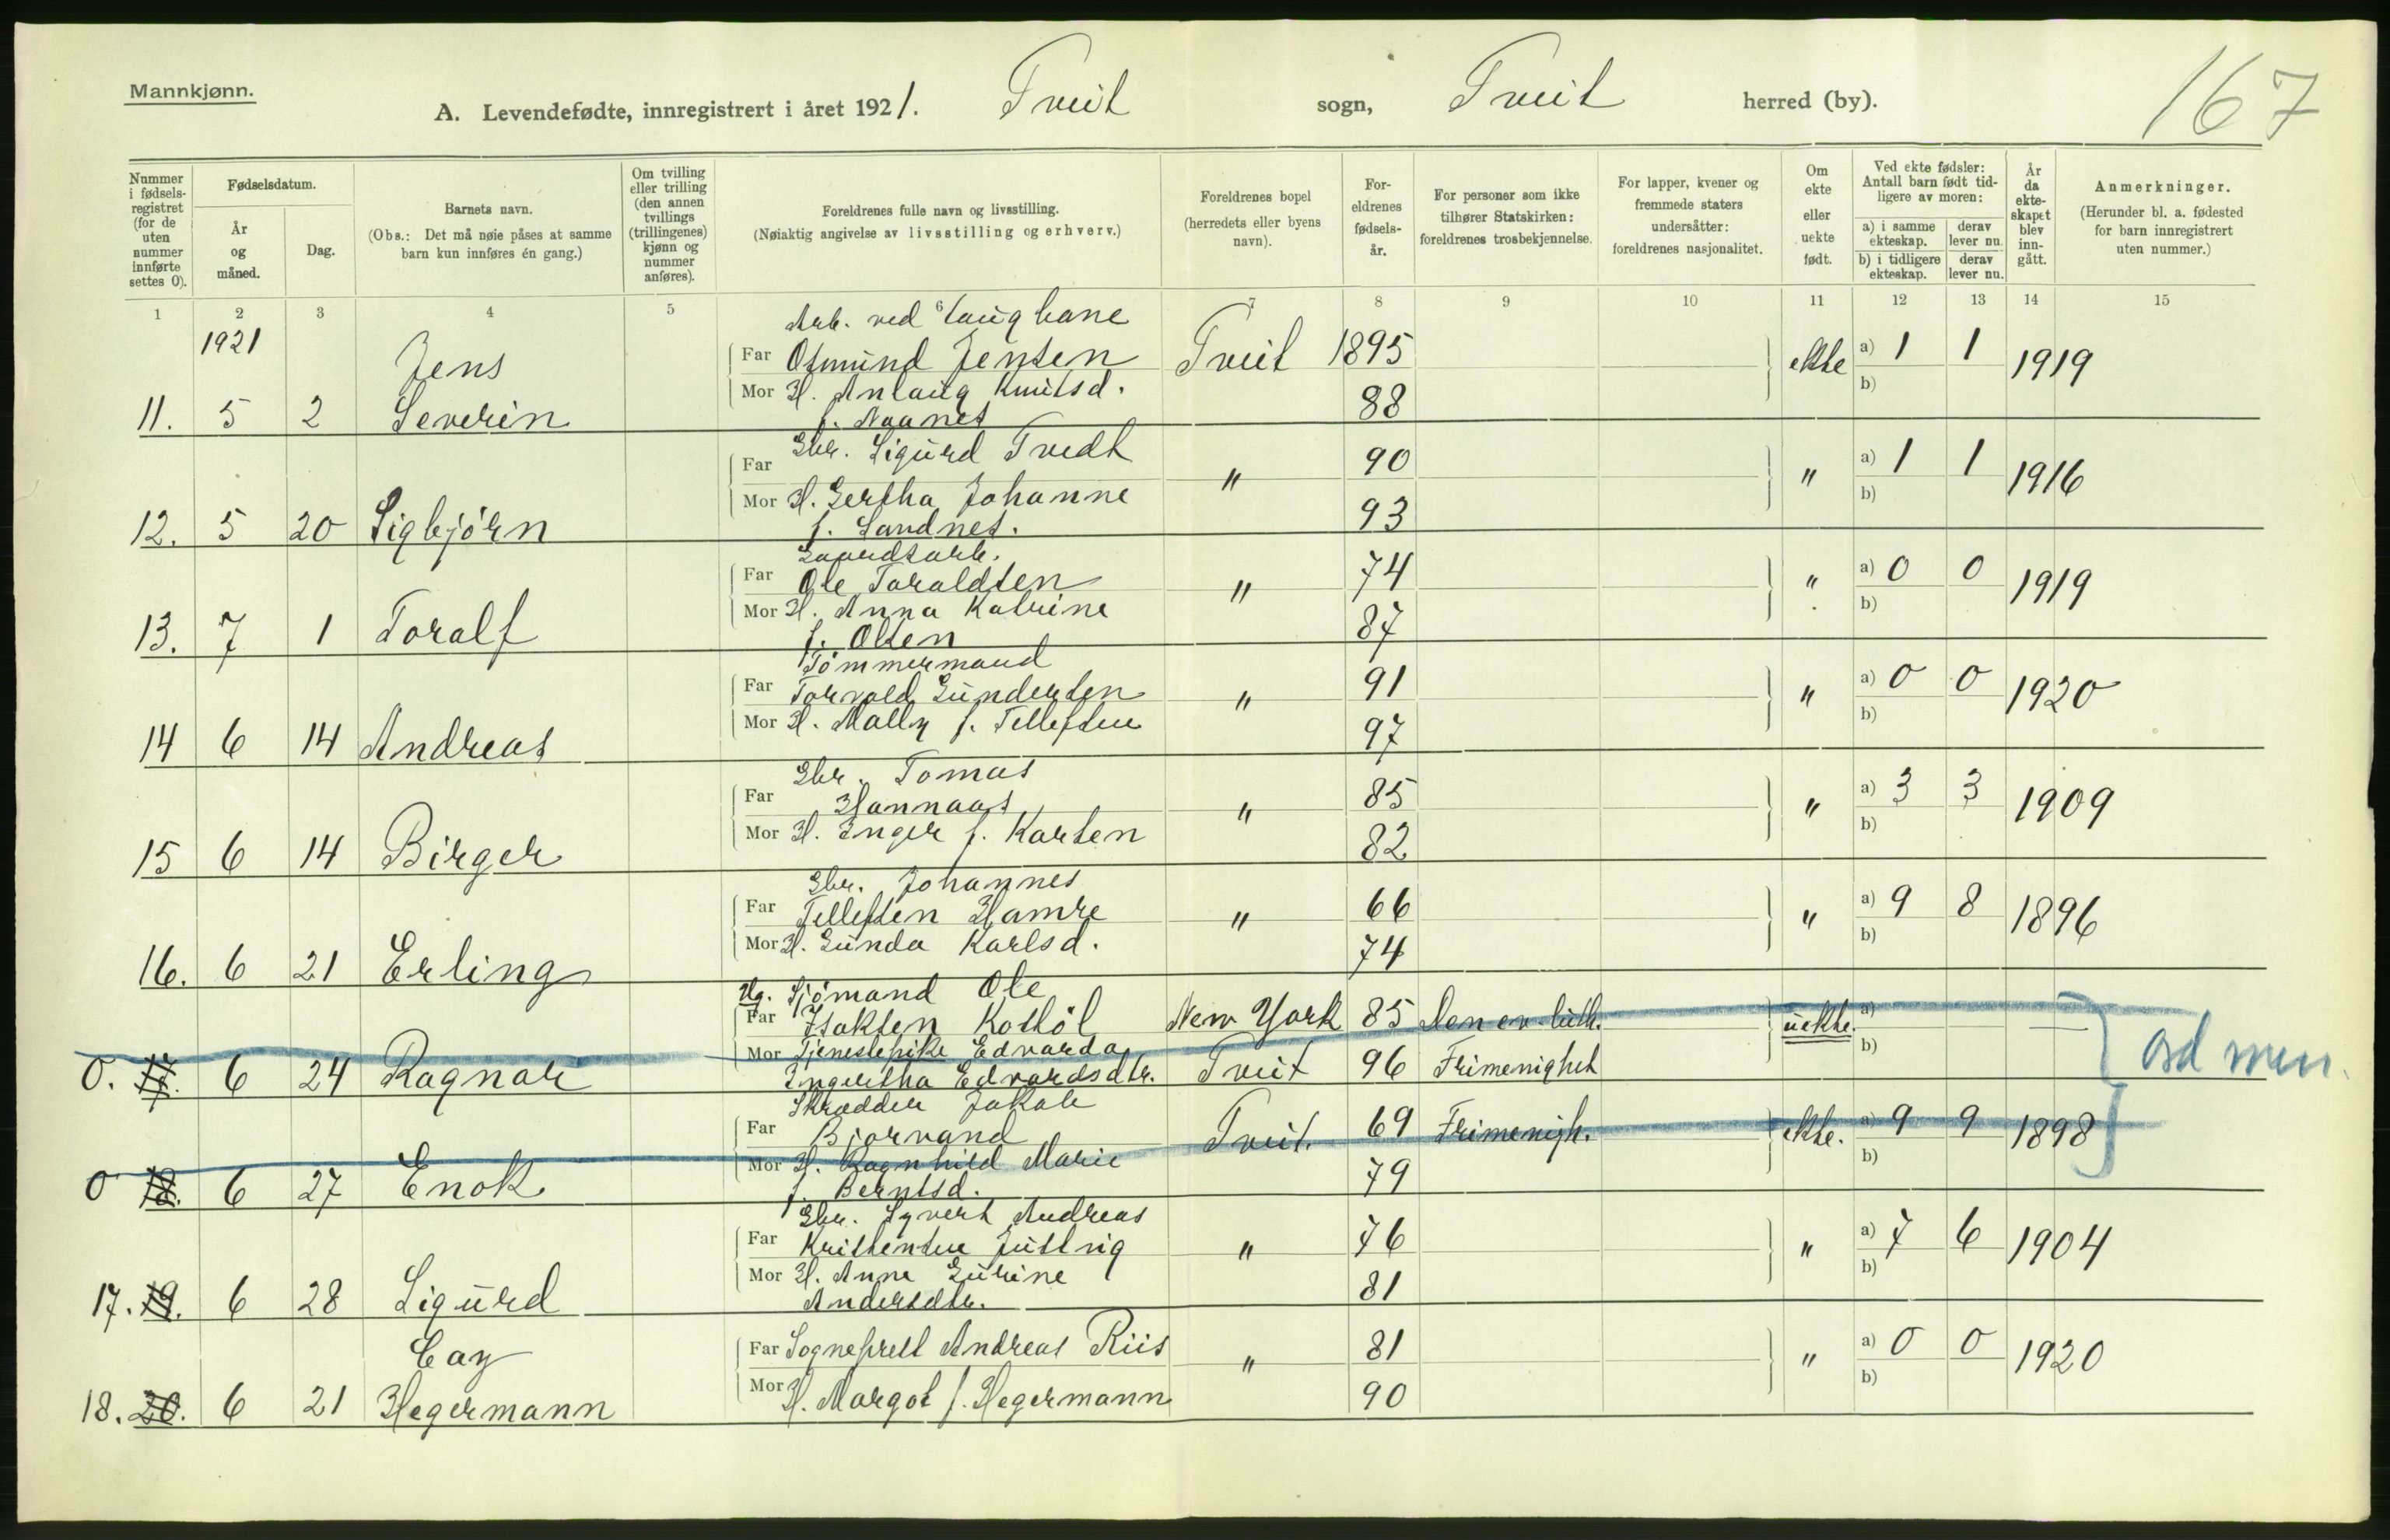 Mannkjønn.
A. Levendefødte, innregistrert i året 1921. Tveit sogn, Tveit herred (by).
167
Nummer i fødsels-registret (for de uten nummer innførte settes 0).
Fødselsdatum.
År og måned.
Dag.
Barnets navn.
(Obs.: Det må nøie påses at samme barn kun innføres én gang.)
Om tvilling eller trilling (den annen tvillings (trillingenes) kjønn og nummer anføres).
Foreldrenes fulle navn og livsstilling.
(Nøiaktig angivelse av livsstilling og erhverv.)
Foreldrenes bopel (herredets eller byens navn).
For-eldrenes fødsels-år.
For personer som ikke tilhører Statskirken: foreldrenes trosbekjennelse.
For lapper, kvener og fremmede staters undersåtter: foreldrenes nasjonalitet.
Om ekte eller uekte født.
Ved ekte fødsler: Antall barn født tid-ligere av moren:
a) i samme ekteskap. derav lever nu.
b) i tidligere ekteskap. derav lever nu.
År da ekte-skapet blev inn-gått.
Anmerkninger.
(Herunder bl. a. fødested for barn innregistrert uten nummer.)
1 2 3 4 5 6 7 8 9 10 11 12 13 14 15
1921
Arb. ved Taugbane
Far Osmund Jensen Tveit 1895 ekte a) 1 1 1919
Jens
Mor H. Anlaug Knutsd. 88 b)
11. 5 2 Severin f. Naanes
Gbr. Sigurd Tvedt
Far " 90 " a) 1 1 1916
Mor H. Gertha Johanne 93 b)
12. 5 20 Sigbjørn f. Sandnes.
Gaardsarb.
Far Ole Taraldsen " 74 " a) 0 0 1919
Mor H. Anna Katrine 87 b)
13. 7 1 Toralf f. Olsen
Tømmermand
Far Torvald Gundersen " 91 " a) 0 0 1920
Mor H. Mally f. Tellefsen 97 b)
14 6 14 Andreas
Gbr. Tomas
Far Hannaas " 85 " a) 3 3 1909
Mor H. Inger f. Karsen 82 b)
15 6 14 Birger
Gbr. Johannes
Far Tellefsen Hamre " 66 " a) 9 8 1896
Mor H. Gunda Karlsd. 74 b)
16. 6 21 Erling
Ug. Sjømand Ole
Far Isaksen Kostøl New York 85 Den ev. luth. uekte. a)
Mor Tjenestepike Edvarda b)
0. 17. 6 24 Ragnar Ingertha Edvardsdtr. Tveit 96 Frimenighet
Skrædder Jakob
Far Bjorvand Tveit. 69 Frimenigh. ekte. a) 9 9 1898
Mor H. Ragnhild Marie 79 b)
0 18. 6 27 Enok f. Berntsd.
Gbr. Syvert Andreas
Far Kristensen Justvig " 76 " a) 7 6 1904
Mor H. Anne Gurine 81 b)
17. 19. 6 28 Sigurd Andersdtr.
Far Sogneprest Andreas Riis " 81 " a) 0 0 1920
Cay
Mor H. Margot f. Hegermann 90 b)
18. 20. 6 21 Hegermann